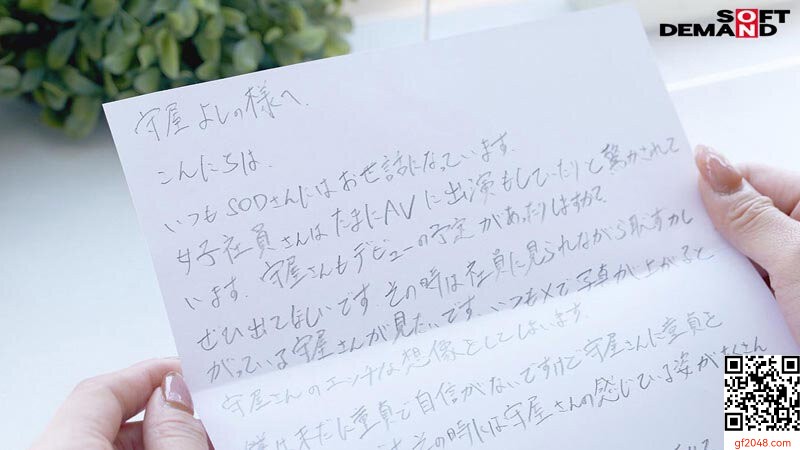 SOFT
DEMAND
守屋よしの様へ
こんにちは、
いつもSODさんにはお世話になっています。
女子社員さんはたまにAVに出演もしていたりと驚かされて
います。守屋さんもデビューの予定があったりしますか?
ぜひ出てほしいです。その時は社員に見られながら恥ずかし
がっている守屋さんが見たいです。いつもXで写真が上がると
守屋さんのエッチな想像をしてしまいます。
未だに童貞で自信がないですけど守屋さんに童貞を
その時には守屋さんの感じている姿がたくさん
gf2048.com